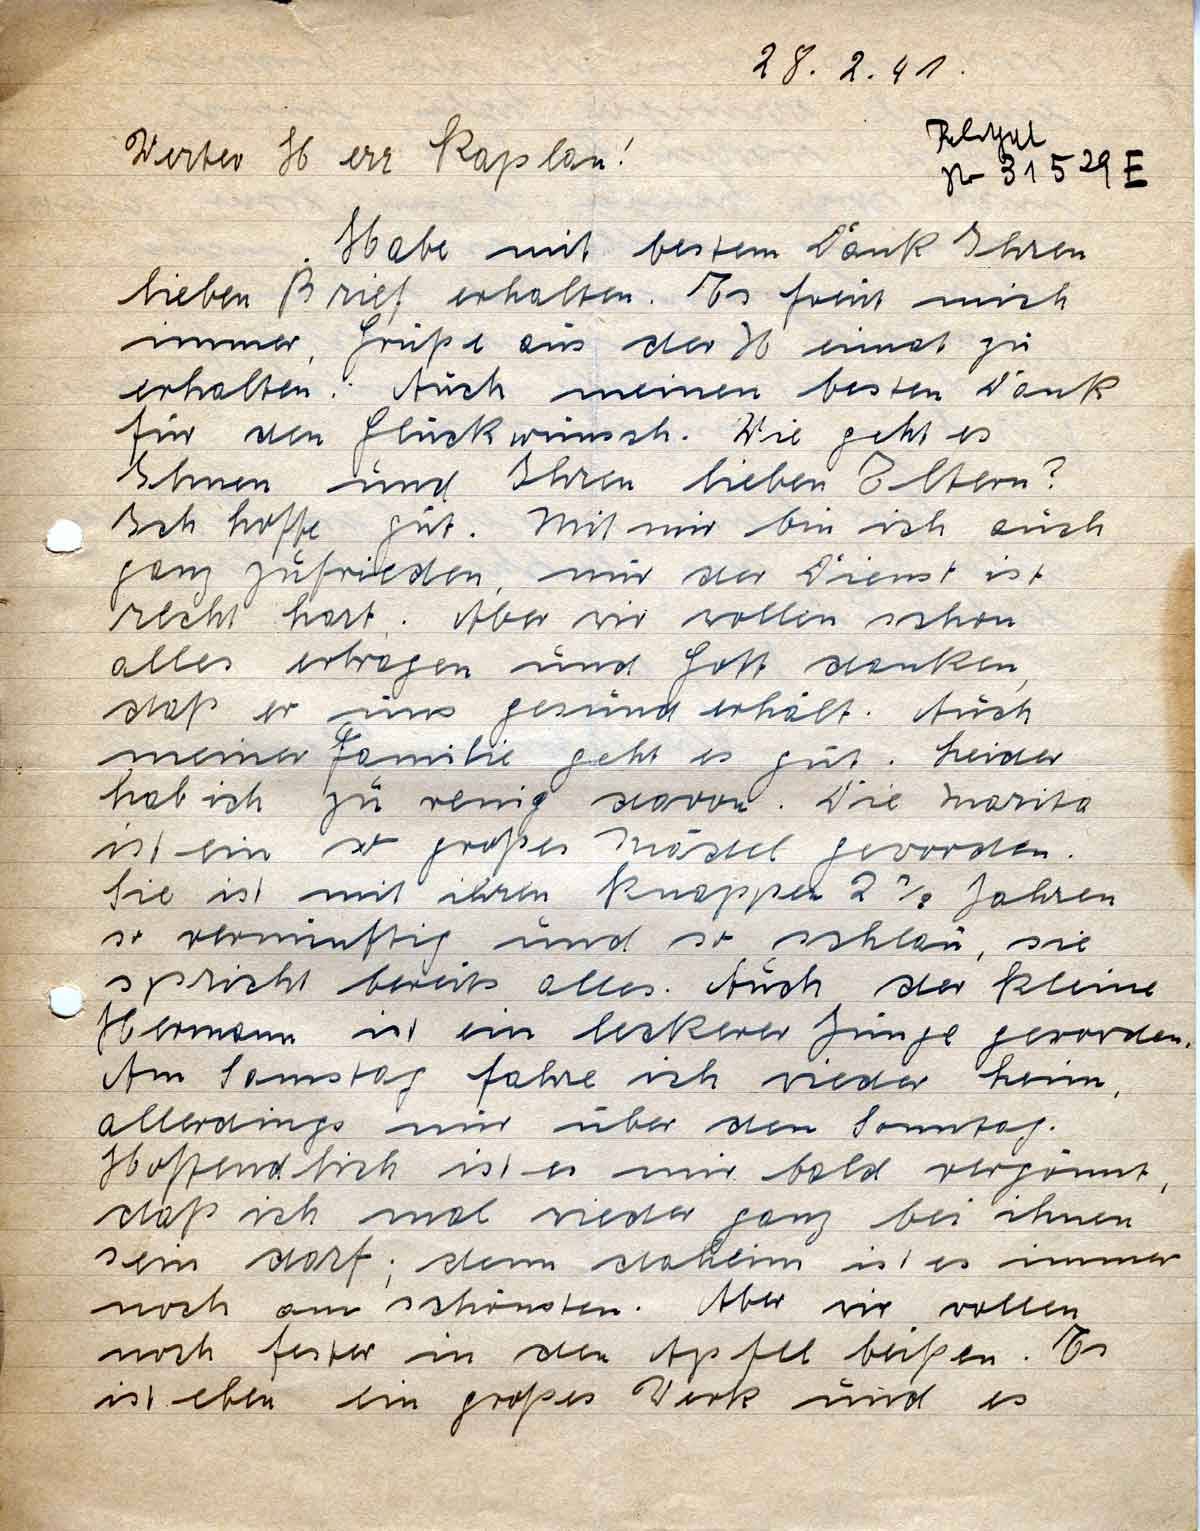 28. 2. 41.
Werter Herr Kaplan!
Nr 31529 E
Habe mit bestem Dank Ihren
lieben Brief erhalten. Es freut mich
immer, Grüße aus der Heimat zu
erhalten. Auch meinen besten Dank
für den Glückwunsch. Wie geht es
Ihnen und Ihren lieben Eltern?
Ich hoffe gut. Mit mir bin ich auch
ganz zufrieden, nur der Dienst ist
recht hart. Aber wir wollen schon
alles ertragen und Gott danken,
daß er uns gesund erhält. Auch
meiner Familie geht es gut. Leider
hab ich zu wenig davon. Die Marita
ist ein so großes Mädel geworden.
Sie ist mit ihren knappen 2 ½ Jahren
so vernünftig und so schlau, sie
spricht bereits alles. Auch der kleine
Hermann ist ein leckerer Junge geworden.
Am Samstag fahre ich wieder heim,
allerdings nur über den Sonntag.
Hoffendlich ist es mir bald vergönnt,
daß ich mal wieder ganz bei ihnen
sein darf; denn daheim ist es immer
noch am schönsten. Aber wir wollen
noch fester in den Apfel beißen. Es
ist eben ein großes Werk und es